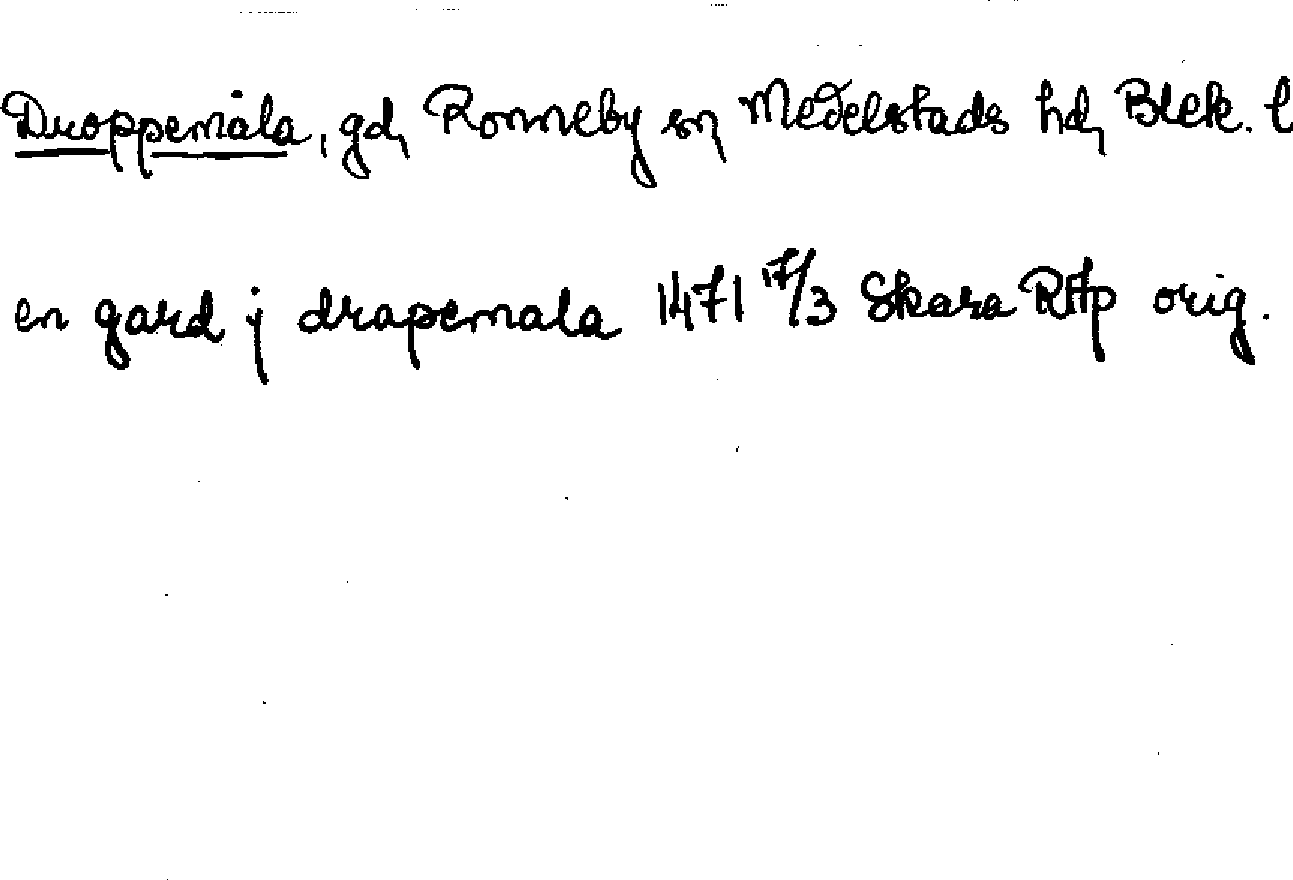 Droppemåla, gd, Ronneby sn, Medelstads hd, Blek. l
en gard j drapemala 1471 17/3 Skara RAp orig.